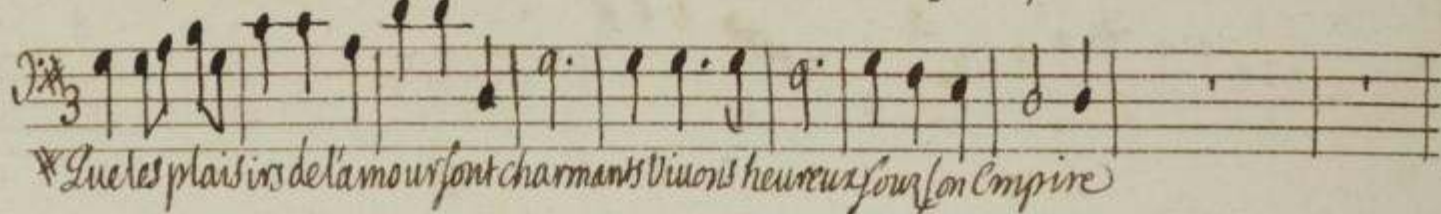 3
Que les plaisirs de l'amour sont charmants Viuons heureux sous son Empire